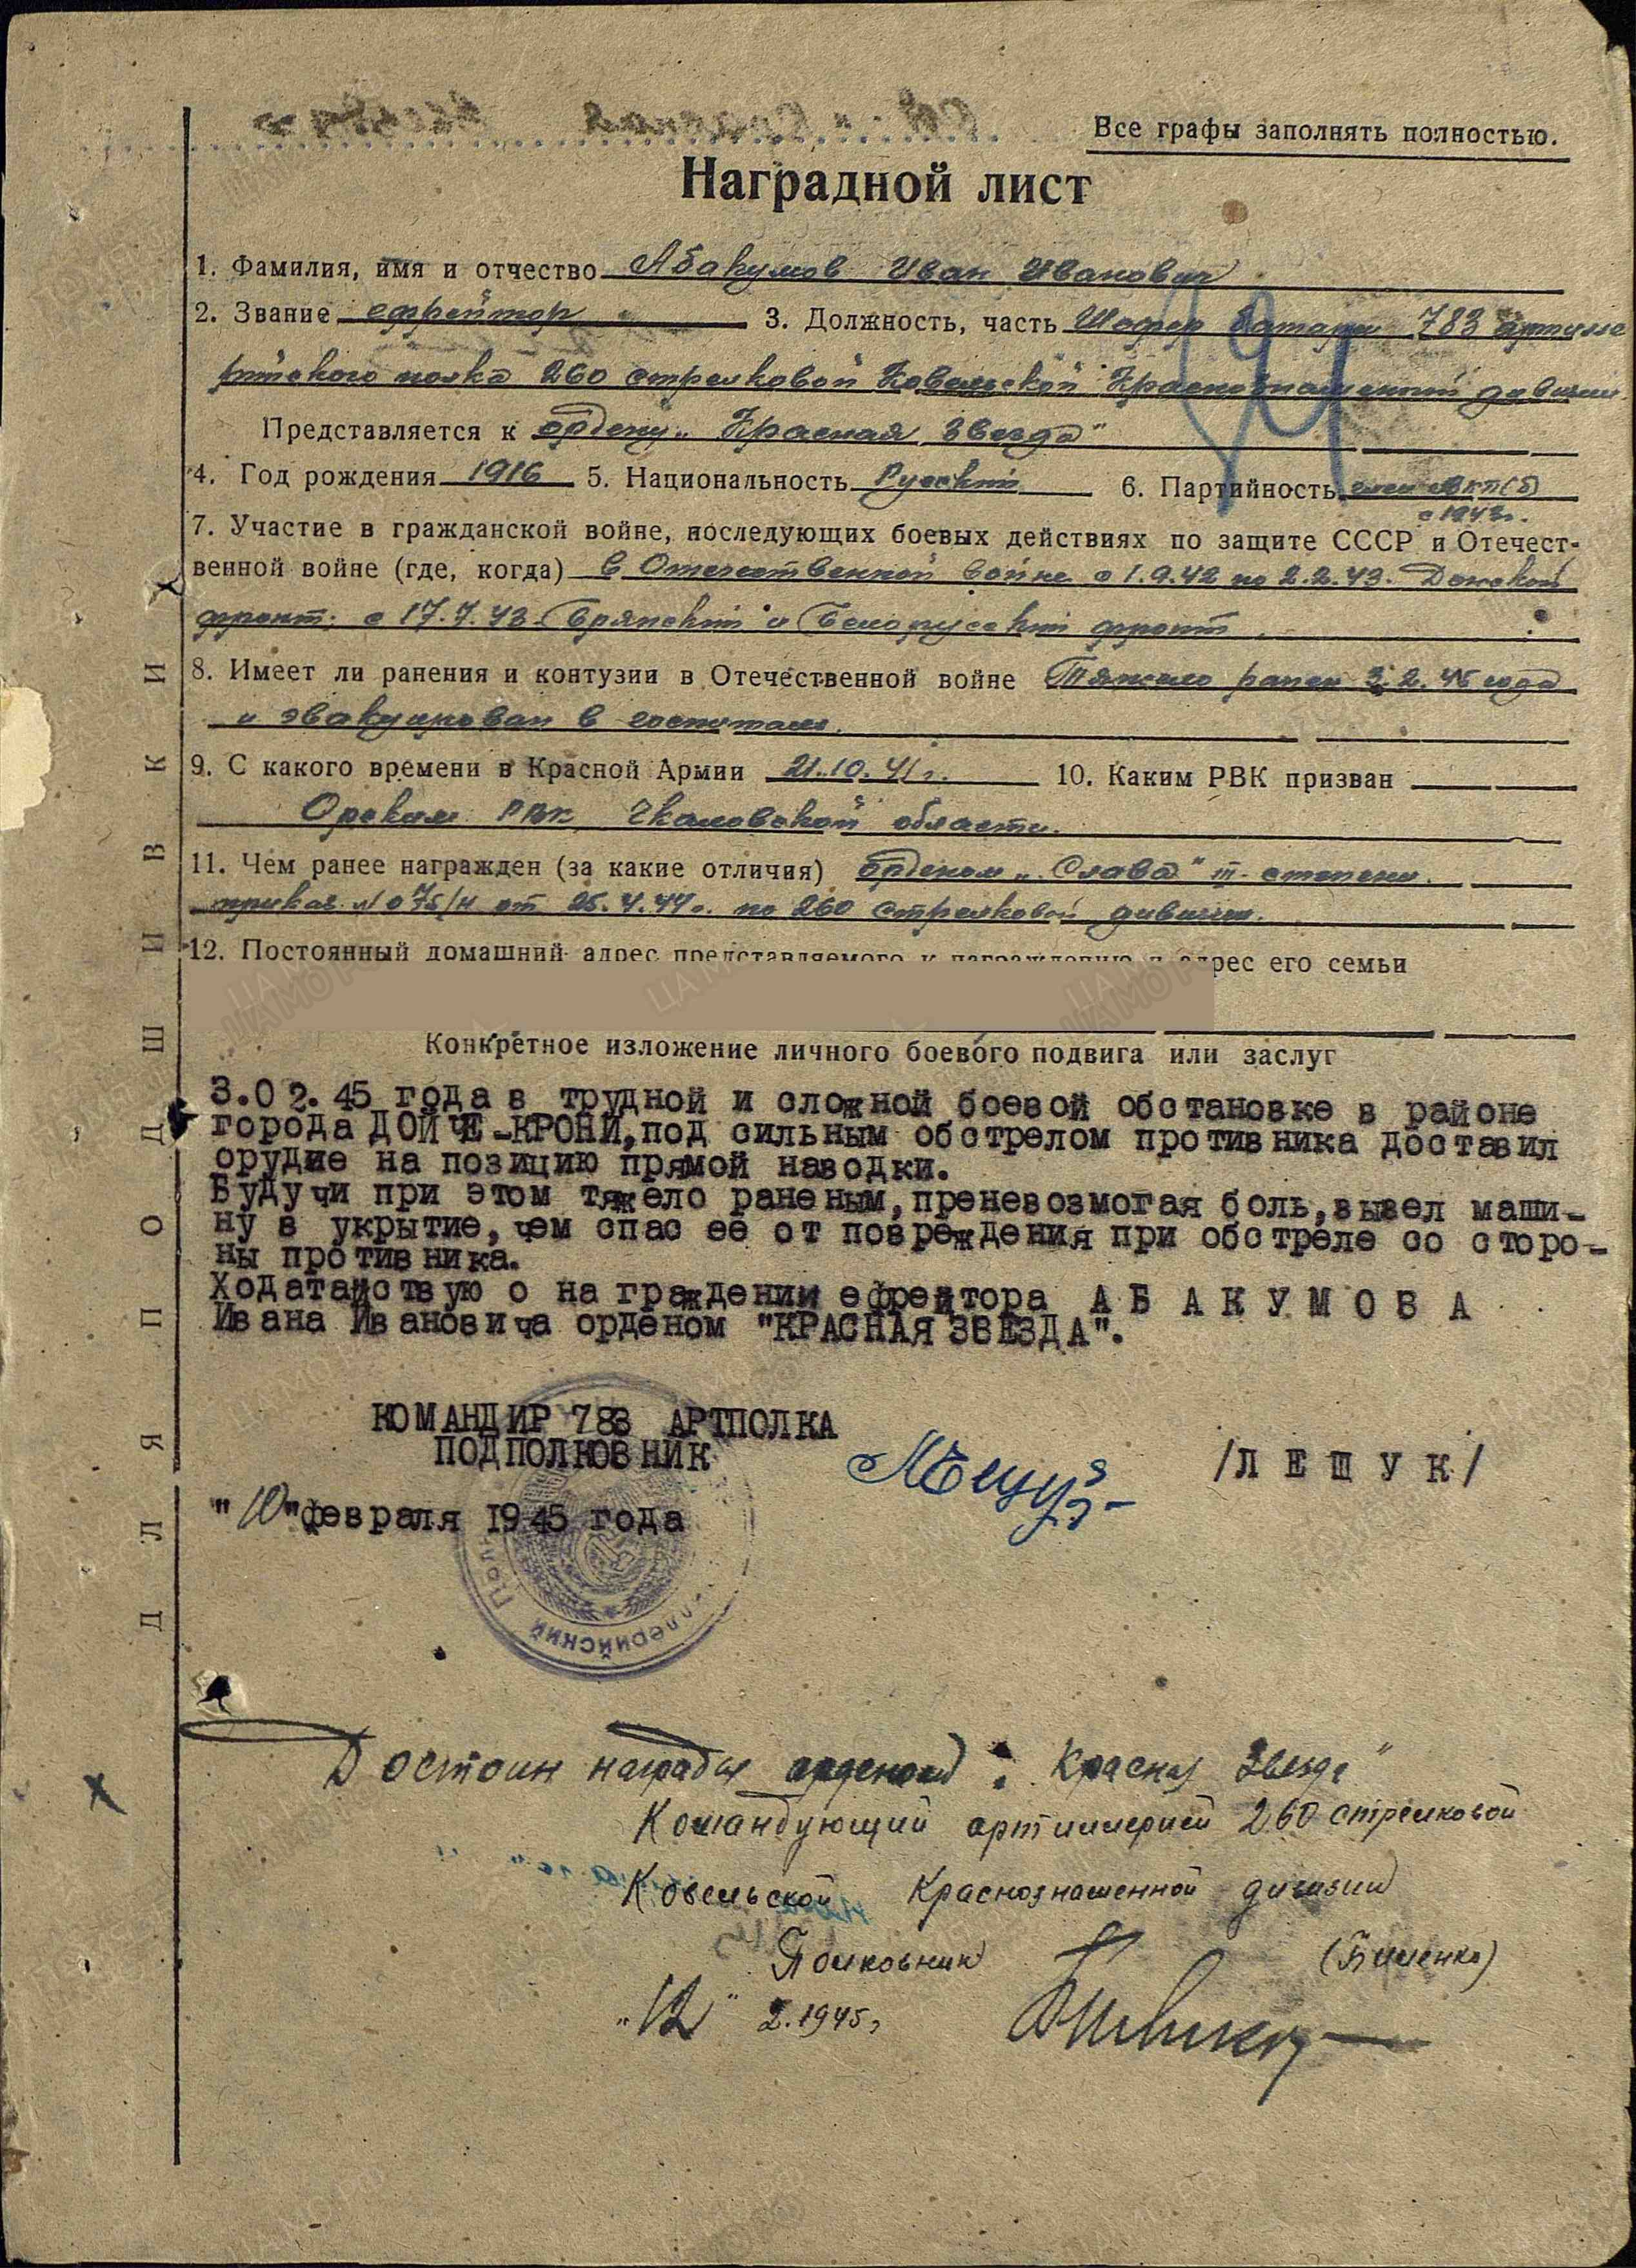 Все графы заполнять полностью.
Наградной лист
1. Фамилия, имя и отчество Абакумов Иван Иванович
2. Звание ефрейтор 3. Должность, часть Шофер батареи 783 артилле
рийского полка 260 стрелковой Ковельской Краснознаменной дивизии
Представляется к ордену „Красная Звезда"
4. Год рождения 1916 5. Национальность Русский 6. Партийность член ВКП(б)
с 1943г.
7. Участие в гражданской войне, последующих боевых действиях по защите СССР и Отечест-
венной войне (где, когда) в Отечественной войне с 1.9.42 по 2.2.43. Донской
фронт; с 17.7.43 Брянский и Белорусский фронт.
8. Имеет ли ранения и контузии в Отечественной войне Тяжело ранен 3.2.45 года
и эвакуирован в госпиталь.
9. С какого времени в Красной Армии 21.10.41г. 10. Каким РВК призван
Орским РВК Чкаловской области.
11. Чем ранее награжден (за какие отличия) орденом „Слава" III степени.
приказ №075/н от 25.4.44г. по 260 стрелковой дивизии.
12. Постоянный домашний адрес представляемого к награждению и адрес его семьи
Конкретное изложение личного боевого подвига или заслуг
3.02.45 года в трудной и сложной боевой обстановке в районе
города ДОЙЧЕ-КРОНИ, под сильным обстрелом противника доставил
орудие на позицию прямой наводки.
Будучи при этом тяжело раненым, преневозмогая боль, вывел маши-
ну в укрытие, чем спас ее от повреждения при обстреле со сторо-
ны противника.
Ходатайствую о награждении ефрейтора А Б А К У М О В А
Ивана Ивановича орденом "КРАСНАЯ ЗВЕЗДА".
КОМАНДИР 783 АРТПОЛКА
ПОДПОЛКОВНИК /Л Е Щ У К/
"10" февраля 1945 года
Достоин награды орденом: Красная Звезда"
Командующий артиллерией 260 стрелковой
Ковельской Краснознаменной дивизии
Полковник
„12" 2.1945г
ДЛЯ ПОДШИВКИ